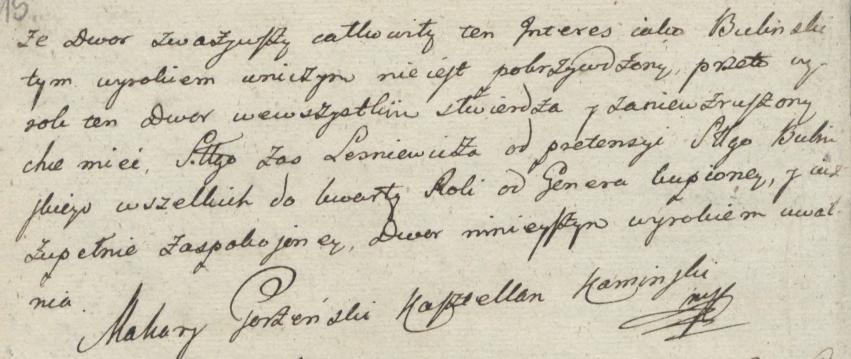 15.
że Dwor zwazywszy całkowity ten Interes iako Bubinski
tym wyrokiem wniczym nieiest pokrzywdzony, przeto wy-
rok ten Dwor wewszystkim stwierdza y zaniewzruszony
chce mieć, Sttgo zas Lesniewicza od pretensyi Sttgo Bubin
skiego wszelkich do kwarty Roli od Genera kupioney, y iuz
zupełnie zaspokojoney, Dwor ninieyszym wyrokiem uwal-
nia.
Makary Gorzeński Kasztellan Kaminski